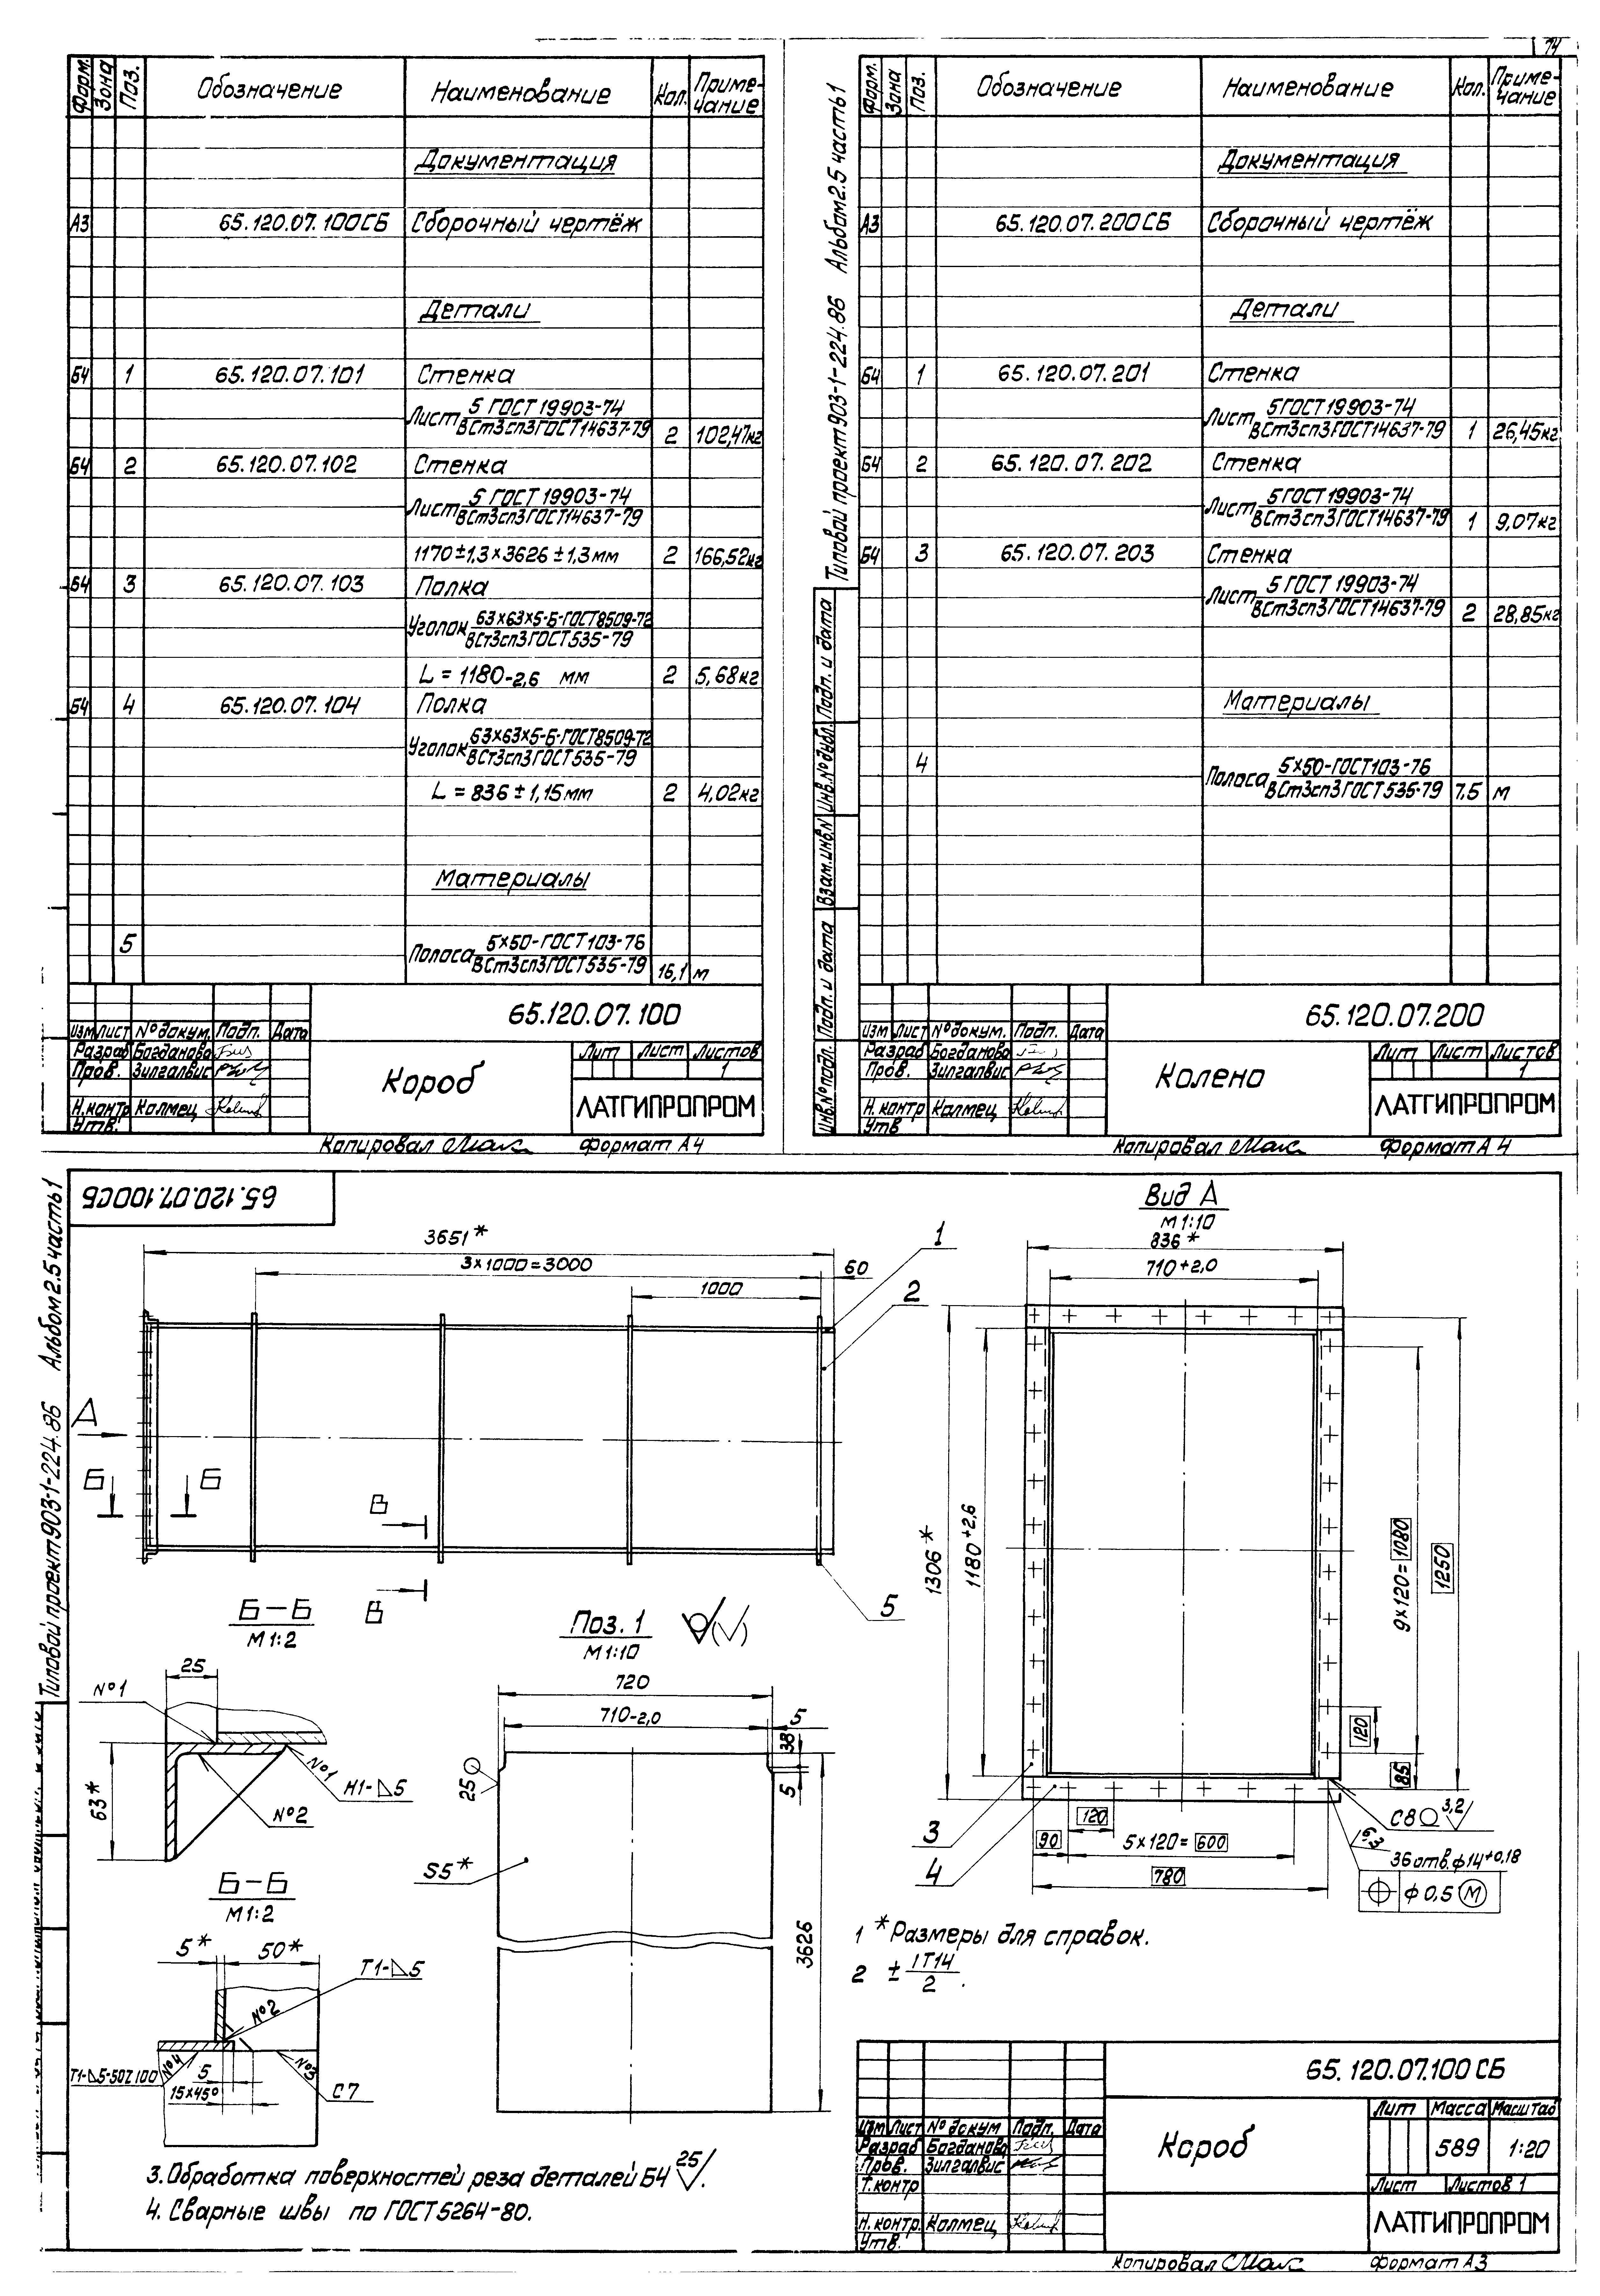 74
Форм.
Зона
Поз.
Обозначение
Наименование
Кол.
Приме-
чание
Документация
А3 65.120.07.100СБ Сборочный чертёж
Детали
Б4 1 65.120.07.101 Стенка
Лист 5 ГОСТ 19903-74
ВСт3сп3ГОСТ14637-79 2 102,47кг
Б4 2 65.120.07.102 Стенка
Лист 5 ГОСТ 19903-74
ВСт3сп3ГОСТ14637-79
1170±1,3×3626±1,3мм 2 166,52кг
Б4 3 65.120.07.103 Полка
Уголок 63×63×5-Б-ГОСТ8509-72
ВСт3сп3ГОСТ535-79
L=1180-2,6 мм 2 5,68кг
Б4 4 65.120.07.104 Полка
Уголок 63×63×5-Б-ГОСТ8509-72
ВСт3сп3ГОСТ535-79
L=836±1,15мм 2 4,02кг
Материалы
5 Полоса 5×50-ГОСТ103-76
ВСт3сп3ГОСТ535-79 16,1 м
65.120.07.100
Изм Лист №докум. Подп. Дата
Разраб Богданова
Пров. Зилгалвис
Н.контр Калмец
Утв.
Короб
Лит Лист Листов
1
ЛАТГИПРОПРОМ
Копировал Формат А4
Типовой проект903-1-224.86 Альбом2.5 часть1
Форм.
Зона
Поз.
Обозначение
Наименование
Кол.
Приме-
чание
Документация
А3 65.120.07.200СБ Сборочный чертёж
Детали
Б4 1 65.120.07.201 Стенка
Лист 5ГОСТ19903-74
ВСт3сп3ГОСТ14637-79 1 26,45кг
Б4 2 65.120.07.202 Стенка
Лист 5ГОСТ19903-74
ВСт3сп3ГОСТ14637-79 1 9,07кг
Б4 3 65.120.07.203 Стенка
Лист 5 ГОСТ 19903-74
ВСт3сп3ГОСТ14637-79 2 28,85кг
Материалы
4 Полоса 5×50-ГОСТ103-76
ВСт3сп3ГОСТ535-79 7.5 м
Инв.№подл. Подп. и дата Взам.инв.N Инв.№дубл. Подп. и дата
65.120.07.200
Изм Лист №докум. Подп. Дата
Разраб Богданова
Пров. Зилгалвис
Н.контр Калмец
Утв
Колено
Лит Лист Листов
1
ЛАТГИПРОПРОМ
Копировал Формат А4
Типовой проект903-1-224.86 Альбом2.5часть1
65.120.07.100СБ
3651*
3×1000=3000
60
1000
1
2
5
А
Б Б
В
В
Вид А
М1:10
836*
710+2,0
1306*
1180+2,6
9×120=1080
1250
120
85
120
90
5×120=600
780
3
4
С8 3,2
6,3
36отв.ф14+0,18
ф0,5 М
Б-Б
М1:2
25
№1
№1
Н1-5
№2
63*
Поз.1
М1:10
720
710-2,0
5
38
5
25
S5*
3626
Б-Б
М1:2
5* 50*
Т1-5
№2
№4
№3
Т1-5-50Z100
5
15×45°
С7
1 *Размеры для справок.
2 ± IT14
2 .
3.Обработка поверхностей реза деталей Б4 25.
4. Сварные швы по ГОСТ5264-80.
65.120.07.100СБ
Изм Лист №докум Подп. Дата
Разраб Богданова
Пров. Зилгалвис
Т.контр
Н.контр. Калмец
Утв.
Короб
Лит Масса Масштаб
589 1:20
Лист Листов 1
ЛАТГИПРОПРОМ
Копировал Формат А3